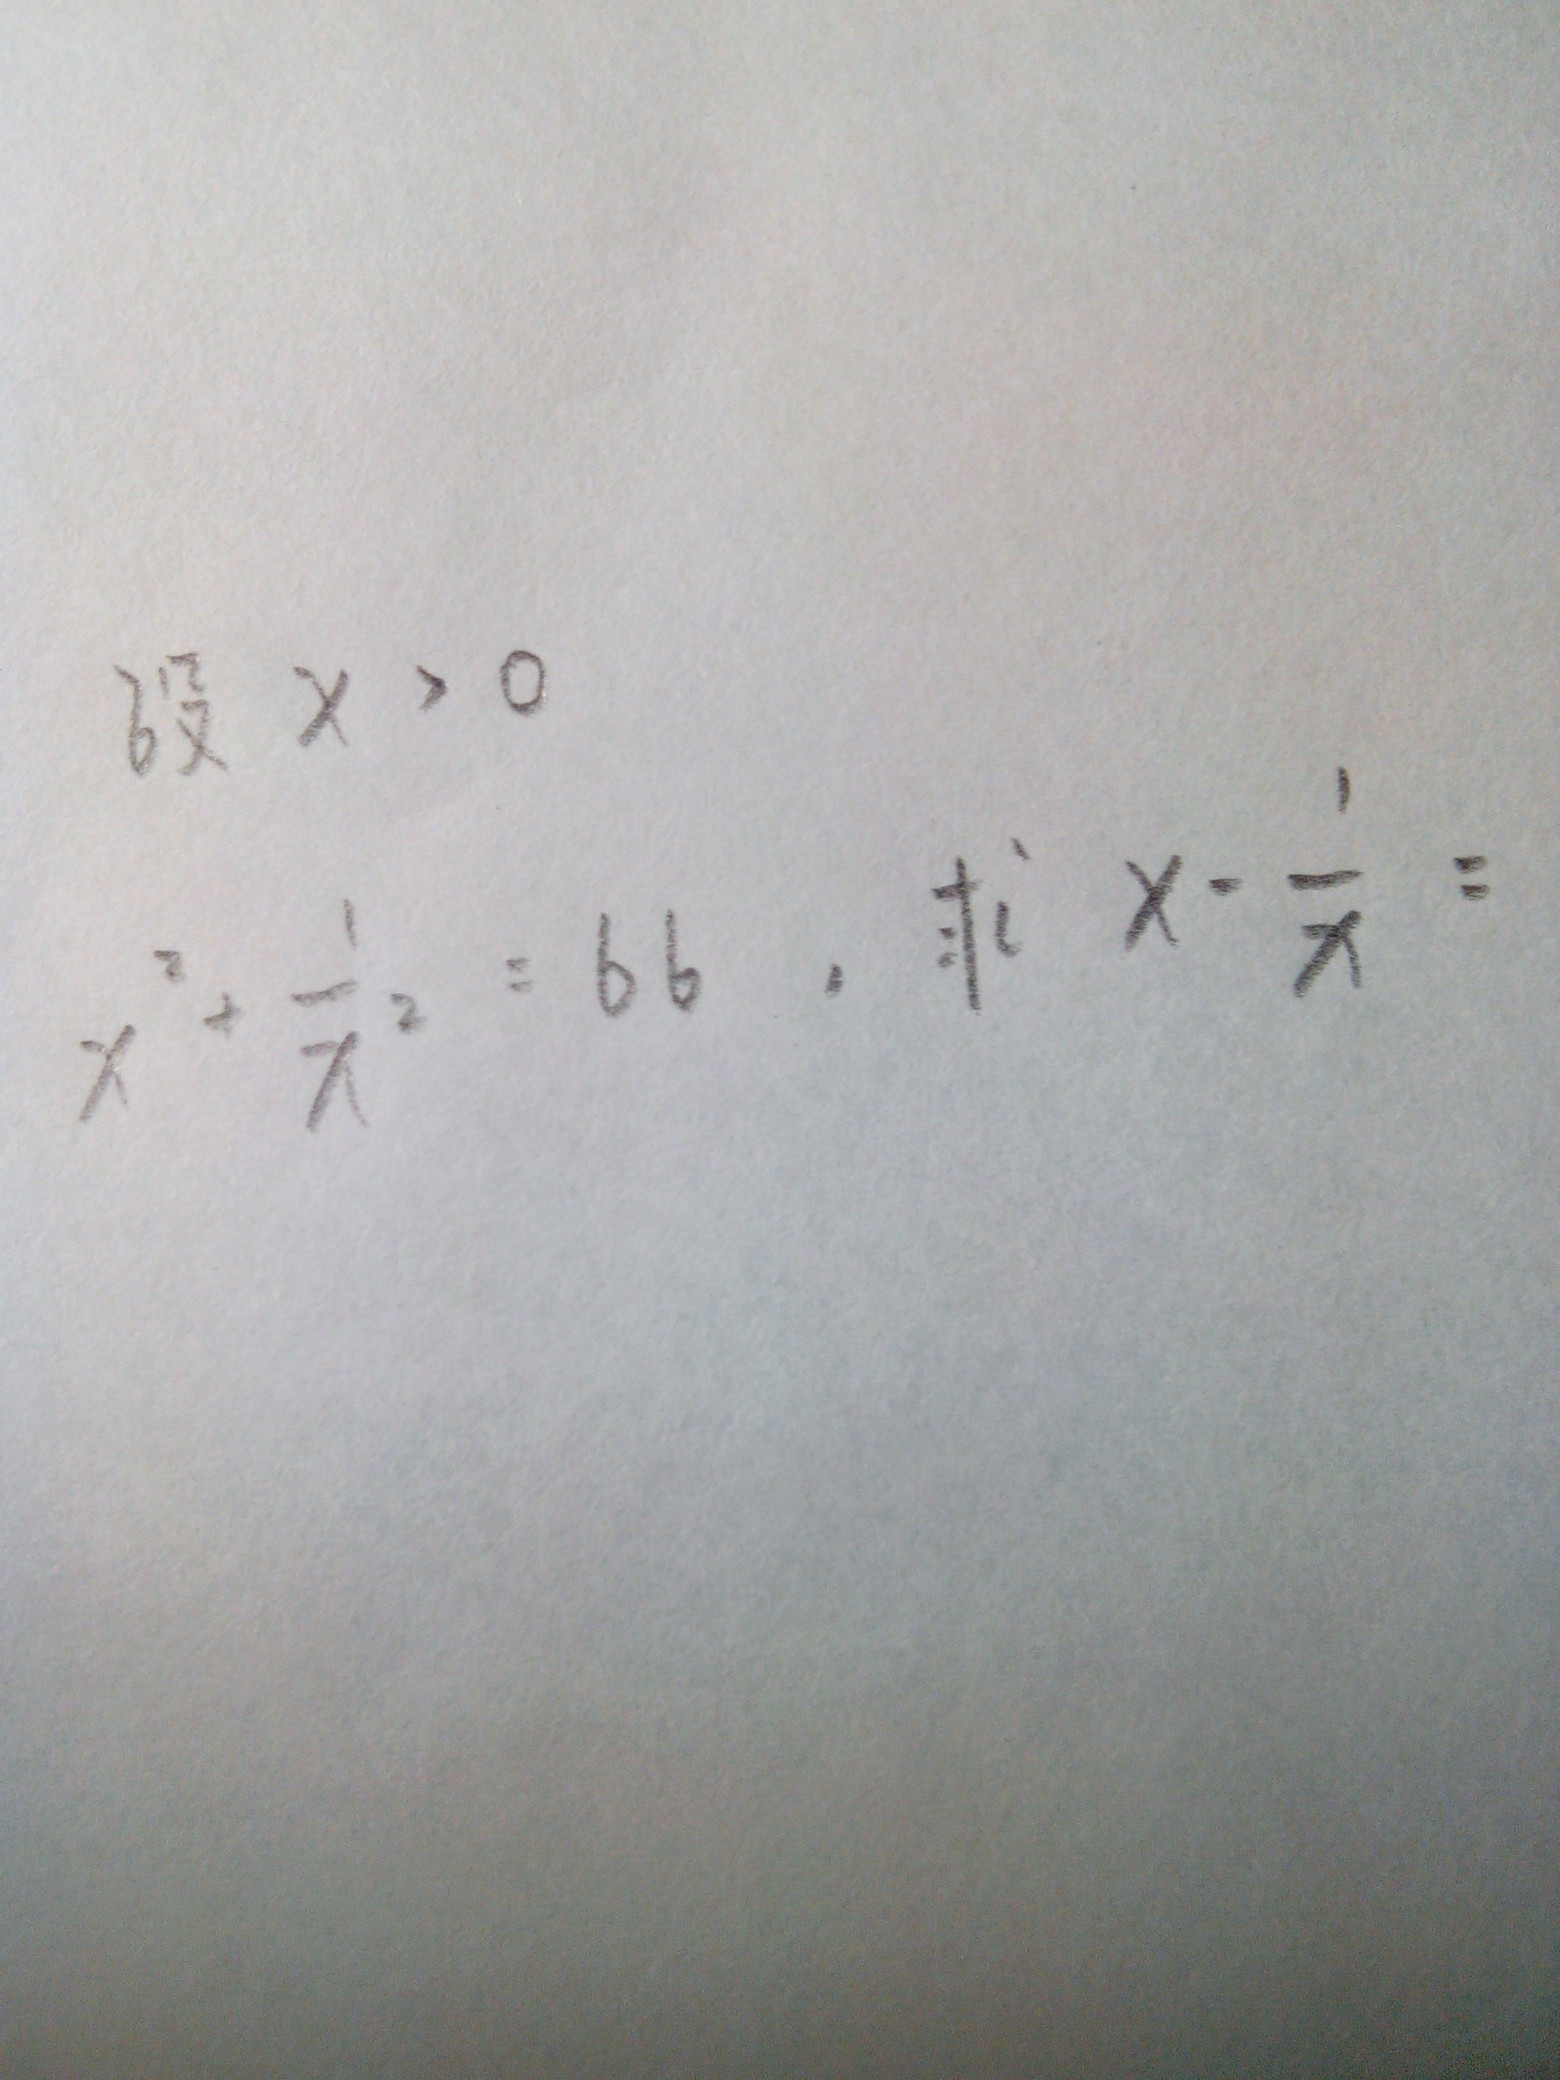 设 x > 0
x² + 1/x² = 66 , 求 x - 1/x =